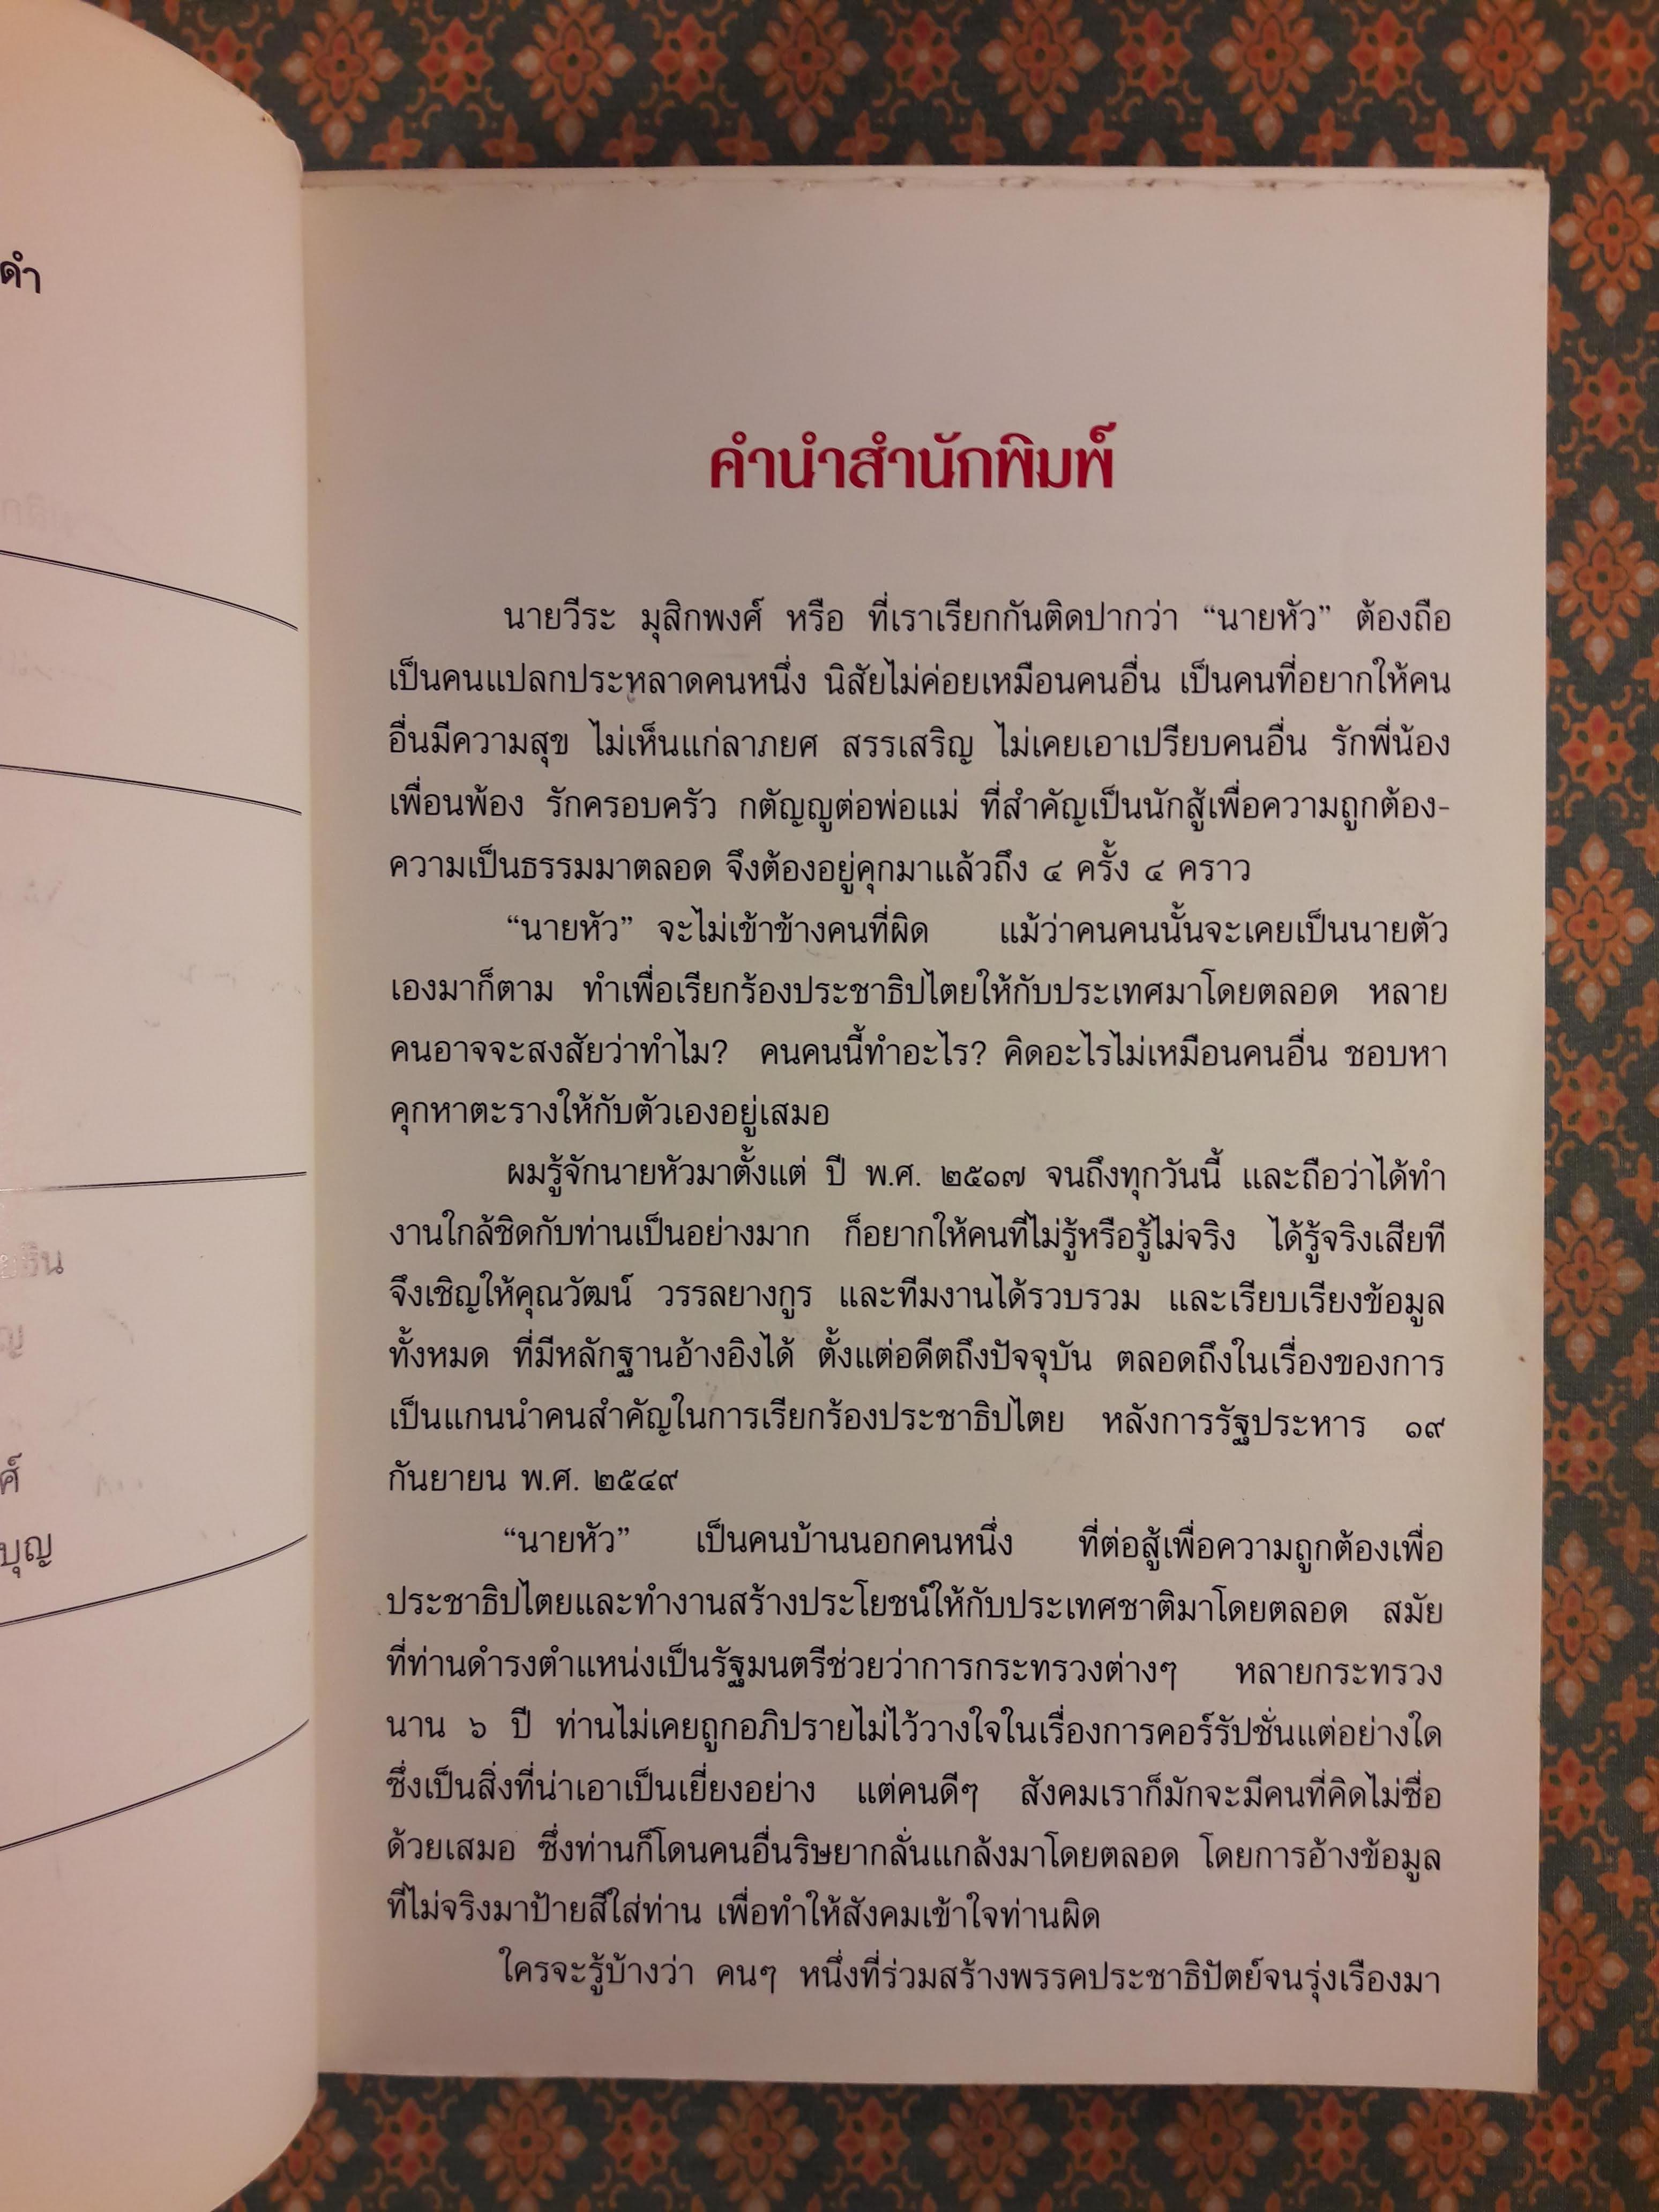 ดำ
ศ์
บุญ
คำนำสำนักพิมพ์
นายวีระ มุสิกพงศ์ หรือ ที่เราเรียกกันติดปากว่า “นายหัว” ต้องถือ
เป็นคนแปลกประหลาดคนหนึ่ง นิสัยไม่ค่อยเหมือนคนอื่น เป็นคนที่อยากให้คน
อื่นมีความสุข ไม่เห็นแก่ลาภยศ สรรเสริญ ไม่เคยเอาเปรียบคนอื่น รักพี่น้อง
เพื่อนพ้อง รักครอบครัว กตัญญูต่อพ่อแม่ ที่สำคัญเป็นนักสู้เพื่อความถูกต้อง-
ความเป็นธรรมมาตลอด จึงต้องอยู่คุกมาแล้วถึง ๔ ครั้ง ๔ คราว
“นายหัว” จะไม่เข้าข้างคนที่ผิด แม้ว่าคนคนนั้นจะเคยเป็นนายตัว
เองมาก็ตาม ทำเพื่อเรียกร้องประชาธิปไตยให้กับประเทศมาโดยตลอด หลาย
คนอาจจะสงสัยว่าทำไม? คนคนนี้ทำอะไร? คิดอะไรไม่เหมือนคนอื่น ชอบหา
คุกหาตะรางให้กับตัวเองอยู่เสมอ
ผมรู้จักนายหัวมาตั้งแต่ ปี พ.ศ. ๒๕๑๗ จนถึงทุกวันนี้ และถือว่าได้ทำ
งานใกล้ชิดกับท่านเป็นอย่างมาก ก็อยากให้คนที่ไม่รู้หรือรู้ไม่จริง ได้รู้จริงเสียที
จึงเชิญให้คุณวัฒน์ วรรลยางกูร และทีมงานได้รวบรวม และเรียบเรียงข้อมูล
ทั้งหมด ที่มีหลักฐานอ้างอิงได้ ตั้งแต่อดีตถึงปัจจุบัน ตลอดถึงในเรื่องของการ
เป็นแกนนำคนสำคัญในการเรียกร้องประชาธิปไตย หลังการรัฐประหาร ๑๙
กันยายน พ.ศ. ๒๕๔๙
“นายหัว” เป็นคนบ้านนอกคนหนึ่ง ที่ต่อสู้เพื่อความถูกต้องเพื่อ
ประชาธิปไตยและทำงานสร้างประโยชน์ให้กับประเทศชาติมาโดยตลอด สมัย
ที่ท่านดำรงตำแหน่งเป็นรัฐมนตรีช่วยว่าการกระทรวงต่างๆ หลายกระทรวง
นาน ๖ ปี ท่านไม่เคยถูกอภิปรายไม่ไว้วางใจในเรื่องการคอร์รัปชั่นแต่อย่างใด
ซึ่งเป็นสิ่งที่น่าเอาเป็นเยี่ยงอย่าง แต่คนดีๆ สังคมเราก็มักจะมีคนที่คิดไม่ซื่อ
ด้วยเสมอ ซึ่งท่านก็โดนคนอื่นริษยากลั่นแกล้งมาโดยตลอด โดยการอ้างข้อมูล
ที่ไม่จริงมาป้ายสีใส่ท่าน เพื่อทำให้สังคมเข้าใจท่านผิด
ใครจะรู้บ้างว่า คนๆ หนึ่งที่ร่วมสร้างพรรคประชาธิปัตย์จนรุ่งเรืองมา